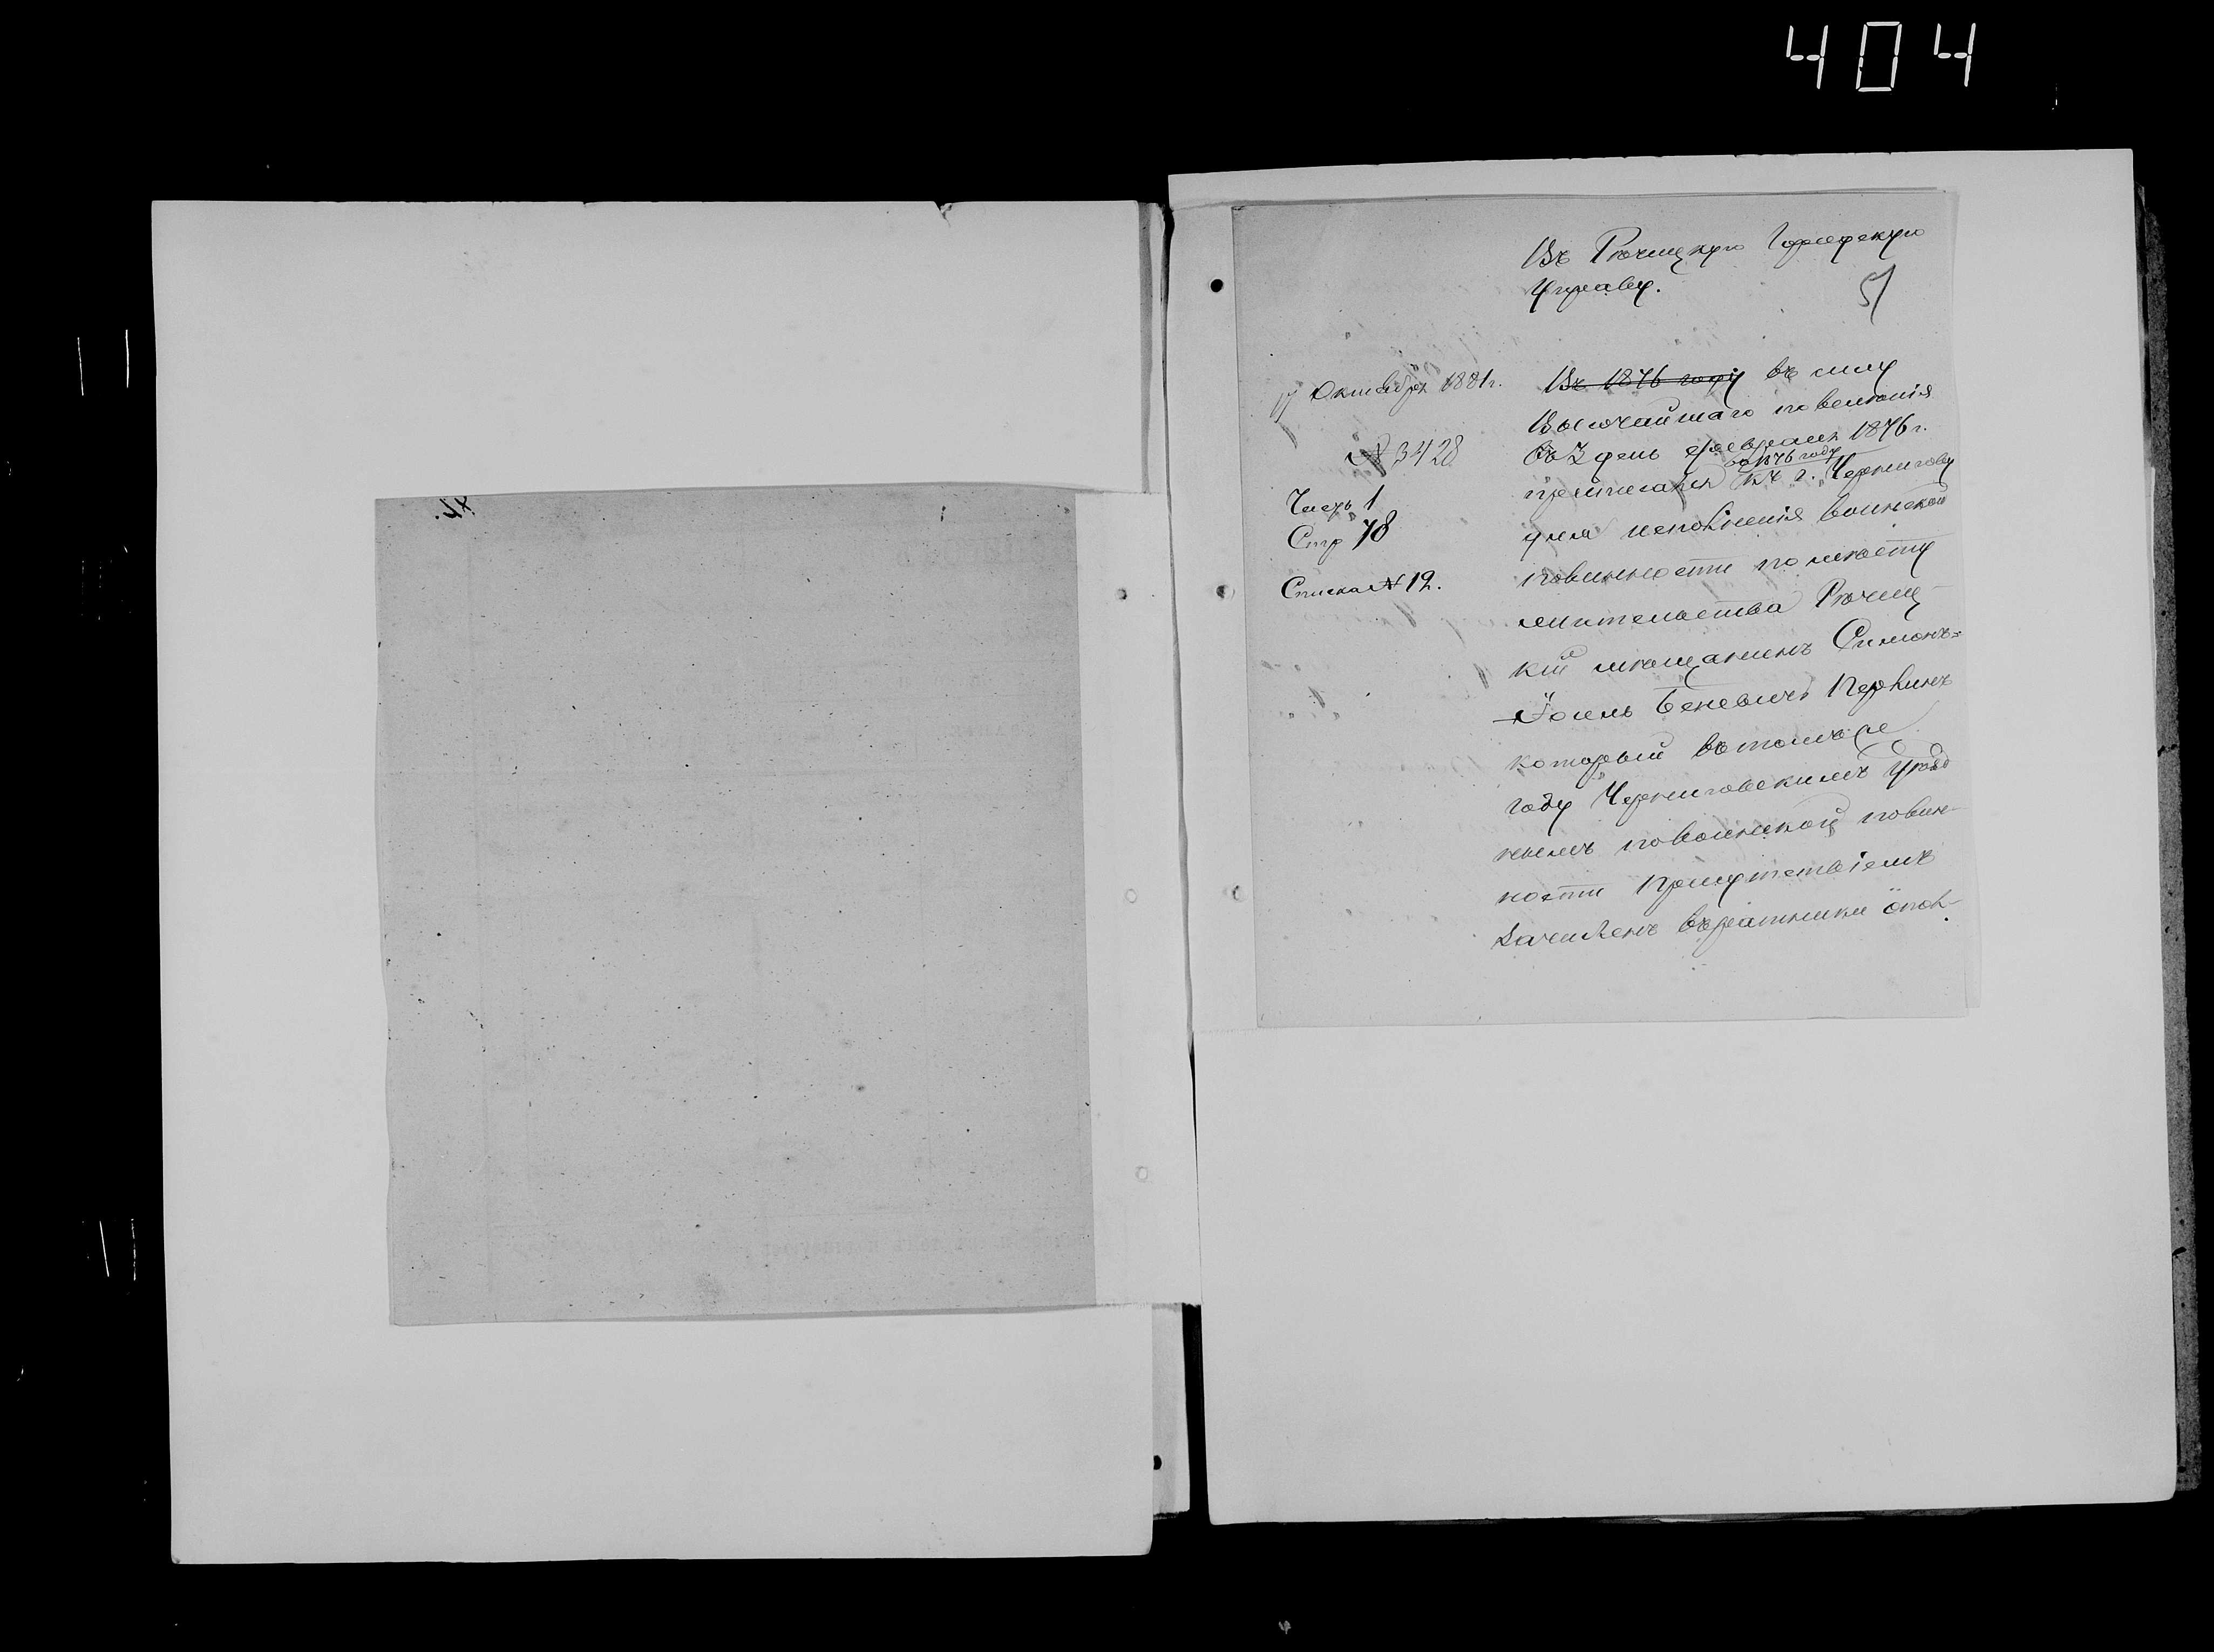 404
Въ Рѣчицкую Городскую
Управу.
51
17 Октября 1881 г.
№ 3428
Часть 1
Стр 78
Списка № 12.
Въ 1876 году въ силу
Высочайшаго повелѣнія
въ 3 день февраля 1876 г.
въ 1876 году
приписанъ къ г. Чернигову
для исполненія воинской
повинности по мѣсту
жительства Рѣчиц-
кій мѣщанинъ Симонъ=
Іосель Беневичъ
который въ томъ же
году Черниговскимъ уѣзд
нымъ по воинской повин-
ности присутствіемъ
зачисленъ въ ратники опол-